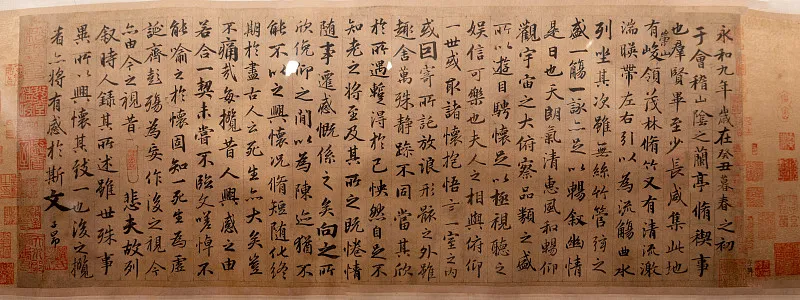 永和九年歲在癸丑暮春之初
于會稽山陰之蘭亭脩稧事
也群賢畢至少長咸集此地
有崇山峻領茂林脩竹又有清流激
湍暎帶左右引以為流觴曲水
列坐其次雖無絲竹管弦之
盛一觴一詠亦足以暢叙幽情
是日也天朗氣清惠風和暢仰
觀宇宙之大俯察品類之盛
所以遊目騁懷足以極視聽之
娛信可樂也夫人之相與俯仰
一世或取諸懷抱悟言一室之內
或因寄所託放浪形骸之外雖
趣舍萬殊静躁不同當其欣
於所遇蹔得於己怏然自足不
知老之將至及其所之既惓情
隨事遷感慨係之矣向之所
欣俛仰之間以為陳迹猶不
能不以之興懷況脩短隨化終
期於盡古人云死生亦大矣豈
不痛哉每攬昔人興感之由
若合一契未嘗不臨文嗟悼不
能喻之於懷固知一死生為虛
誕齊彭殤為妄作後之視今
亦由今之視昔 悲夫故列
叙時人錄其所述雖世殊事
異所以興懷其致一也後之攬
者亦將有感於斯文 子昂